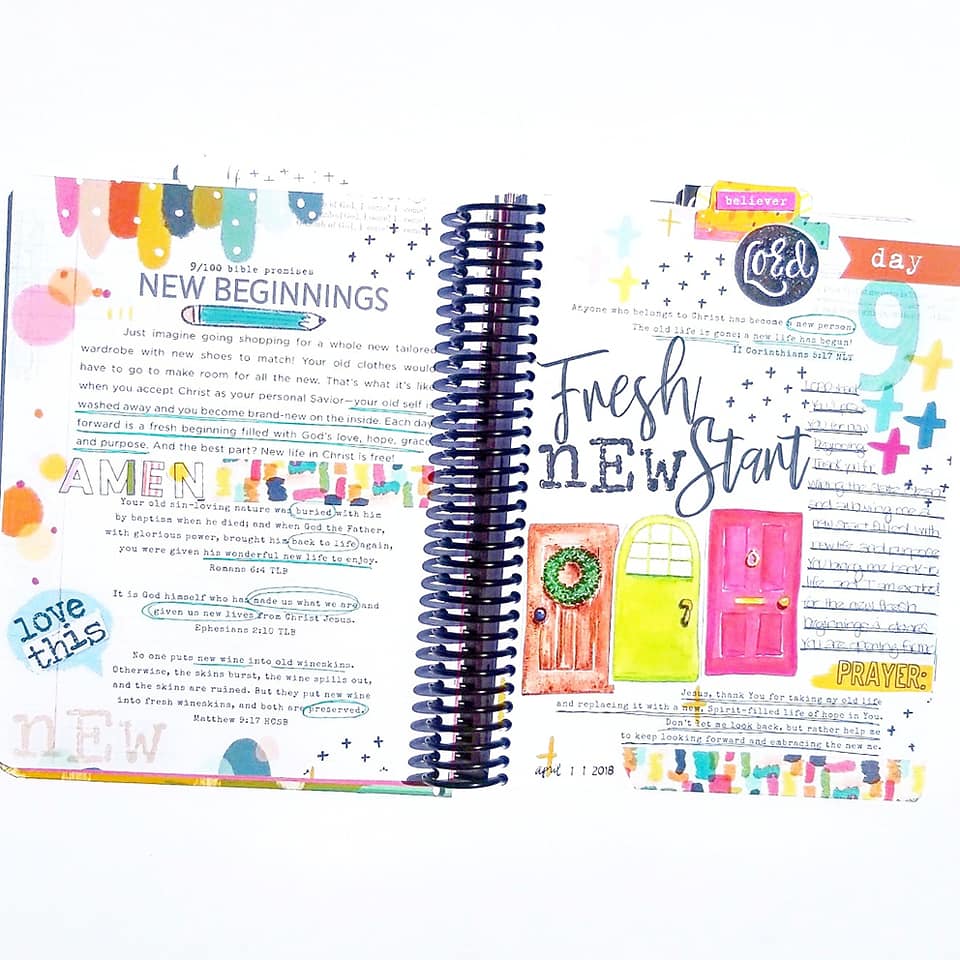 9/100 bible promises
NEW BEGINNINGS
Just imagine going shopping for a whole new tailored
wardrobe with new shoes to match! Your old clothes would
have to go to make room for all the new. That's what it's like
when you accept Christ as your personal Savior—your old self is
washed away and you become brand-new on the inside. Each day
forward is a fresh beginning filled with God's love, hope, grace
and purpose. And the best part? New life in Christ is free!
AMEN
Your old sin-loving nature was buried with him
by baptism when he died; and when God the Father,
with glorious power, brought him back to life again,
you were given his wonderful new life to enjoy.
Romans 6:4 TLB
It is God himself who has made us what we are and
given us new lives from Christ Jesus.
Ephesians 2:10 TLB
love
this
No one puts new wine into old wineskins.
Otherwise, the skins burst, the wine spills out,
and the skins are ruined. But they put new wine
into fresh wineskins, and both are preserved.
Matthew 9:17 HCSB
NEW
believer
Lord
day
9
Anyone who belongs to Christ has become a new person.
The old life is gone; a new life has begun!
II Corinthians 5:17 NLT
Fresh
NEW Start
Thank you for
and allowing me a
new start filled with
new life and purpose
You bring me back to
life and I am excited
for the new fresh
beginnings & doors
you are opening
PRAYER:
Jesus, thank You for taking my old life
and replacing it with a new, Spirit-filled life of hope in You.
Don't let me look back, but rather help me
to keep looking forward and embracing the new me.
april 11 2018